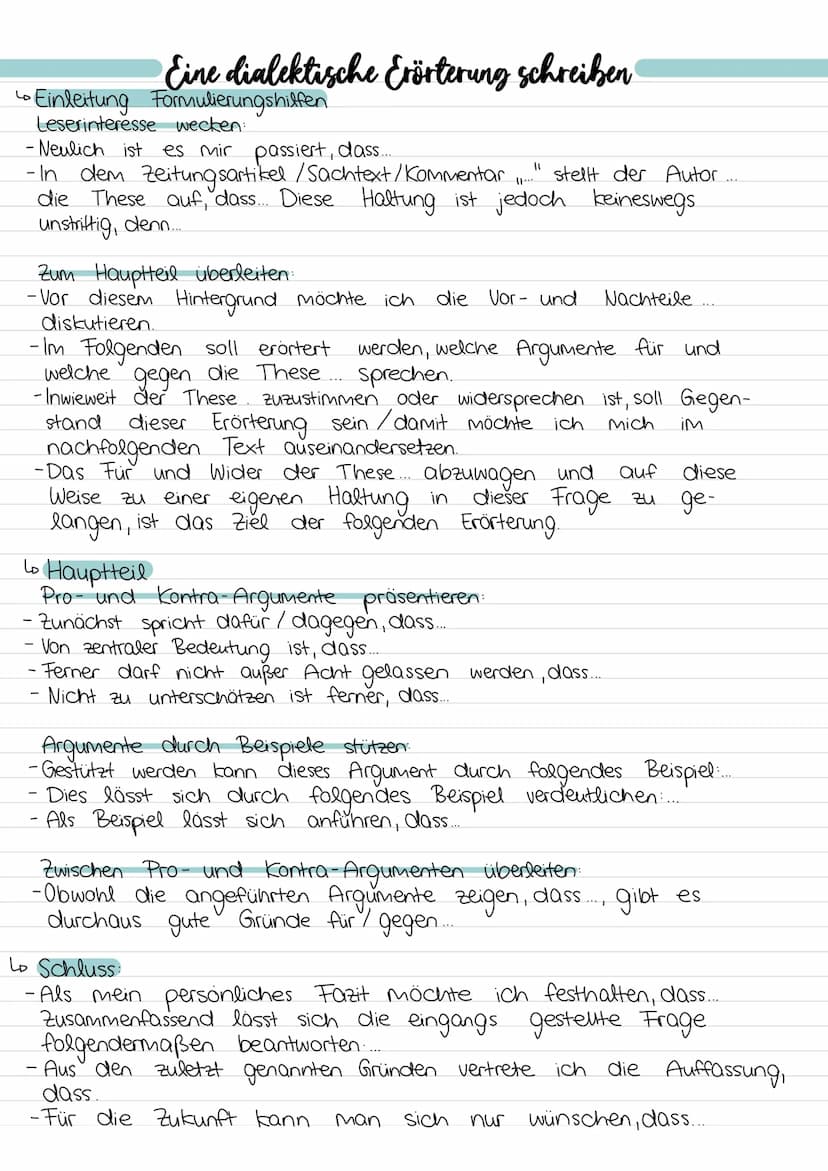 Eine dialektische Erörterung schreiben
↳ Einleitung Formulierungshilfen
Leserinteresse wecken:
- Neulich ist es mir passiert, dass...
- In dem Zeitungsartikel / Sachtext / Kommentar „..." stellt der Autor ...
die These auf, dass... Diese Haltung ist jedoch keineswegs
unstrittig, denn...
Zum Hauptteil überleiten:
- Vor diesem Hintergrund möchte ich die Vor- und Nachteile ...
diskutieren.
- Im Folgenden soll erörtert werden, welche Argumente für und
welche gegen die These ... sprechen.
- Inwieweit der These . zuzustimmen oder widersprechen ist, soll Gegen-
stand dieser Erörterung sein / damit möchte ich mich im
nachfolgenden Text auseinandersetzen.
- Das Für und Wider der These... abzuwagen und auf diese
Weise zu einer eigenen Haltung in dieser Frage zu ge-
langen, ist das Ziel der folgenden Erörterung.
↳ Hauptteil
Pro- und Kontra-Argumente präsentieren:
- Zunächst spricht dafür / dagegen, dass...
- Von zentraler Bedeutung ist, dass...
- Ferner darf nicht außer Acht gelassen werden, dass...
- Nicht zu unterschätzen ist ferner, dass...
Argumente durch Beispiele stützen:
- Gestützt werden kann dieses Argument durch folgendes Beispiel:...
- Dies lässt sich durch folgendes Beispiel verdeutlichen:...
- Als Beispiel lässt sich anführen, dass...
Zwischen Pro- und Kontra-Argumenten überleiten:
- Obwohl die angeführten Argumente zeigen, dass..., gibt es
durchaus gute Gründe für / gegen...
↳ Schluss:
- Als mein persönliches Fazit möchte ich festhalten, dass...
Zusammenfassend lässt sich die eingangs gestellte Frage
folgendermaßen beantworten:...
- Aus den zuletzt genannten Gründen vertrete ich die Auffassung,
dass..
- Für die Zukunft kann man sich nur wünschen, dass...